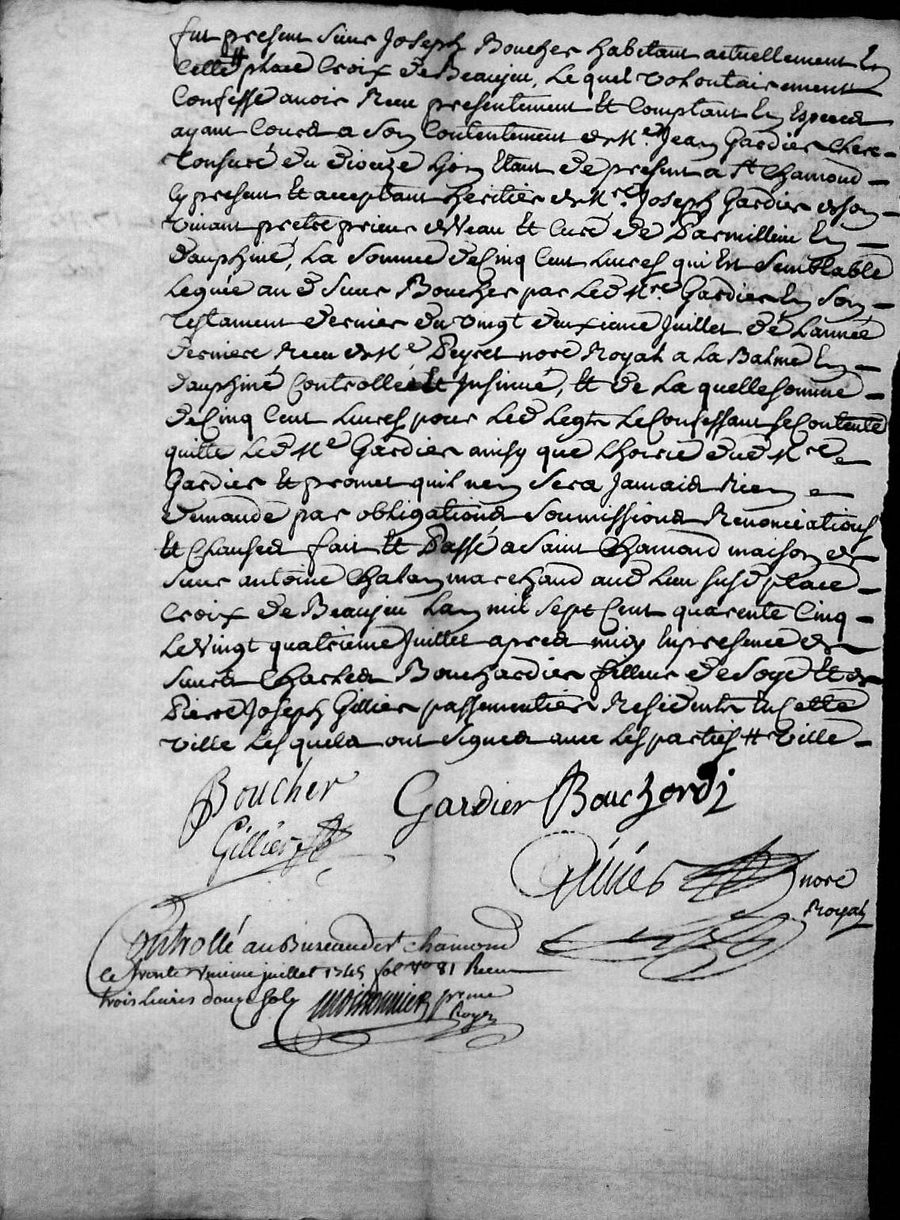 fut present Sieur Joseph Boucher habitant actuellement En
Cette # place Croix de Beaujeu, Lequel volontairement
Confesse avoir Receu presentement Et Comptant En Especes
ayant Cours a Son Contentement de Me. Jean Gardier Clerc
tonsuré du dioceze Lyon Etant de present a St Chamond
Cy present Et acceptant heritier de Mre. Joseph Gardier de son
vivant pretre prieur de Veau Et Curé de Parmillieu En
dauphiné, La Somme de Cinq Cent Livres qui Est Semblable
Leguée au d Sieur Boucher par Led Mre Gardier En Son
Testament dernier du vingt deuxieme Juillet de Lannée
derniere Receu de Me Peyret nore Royal a La Balme En
dauphiné Controllé Et Insinué, Et de La quelle Somme
de Cinq Cent Livres pour Led Legt Le Confessant se Contente
quitte Led Me Gardier ainsy que Lhoirie dud Mre
Gardier Et promet quil nen Sera Jamais Rien
demandé par obligations Soumissions Renonciations
Et Clauses fait Et Passé a Saint Chamond maison de
Sieur antoine Chalan marchand aud Lieu susd place
Croix de Beaujeu Lan mil Sept Cent quarente Cinq
Le vingt quatrieme Juillet apres midy En presence de
Sieurs Charles Bouchardier filleur de Soye Et de
Pierre Joseph Gillier passementier Residents En Cette
ville Lesquels ont Signes avec Les parties # ville
Boucher Gardier Bouchardi
Gillier
nore
Royal
Controllé au Bureau de St chamond
le trente unieme juillet 1745 fol vo 81 Receu
trois Livres douze sols